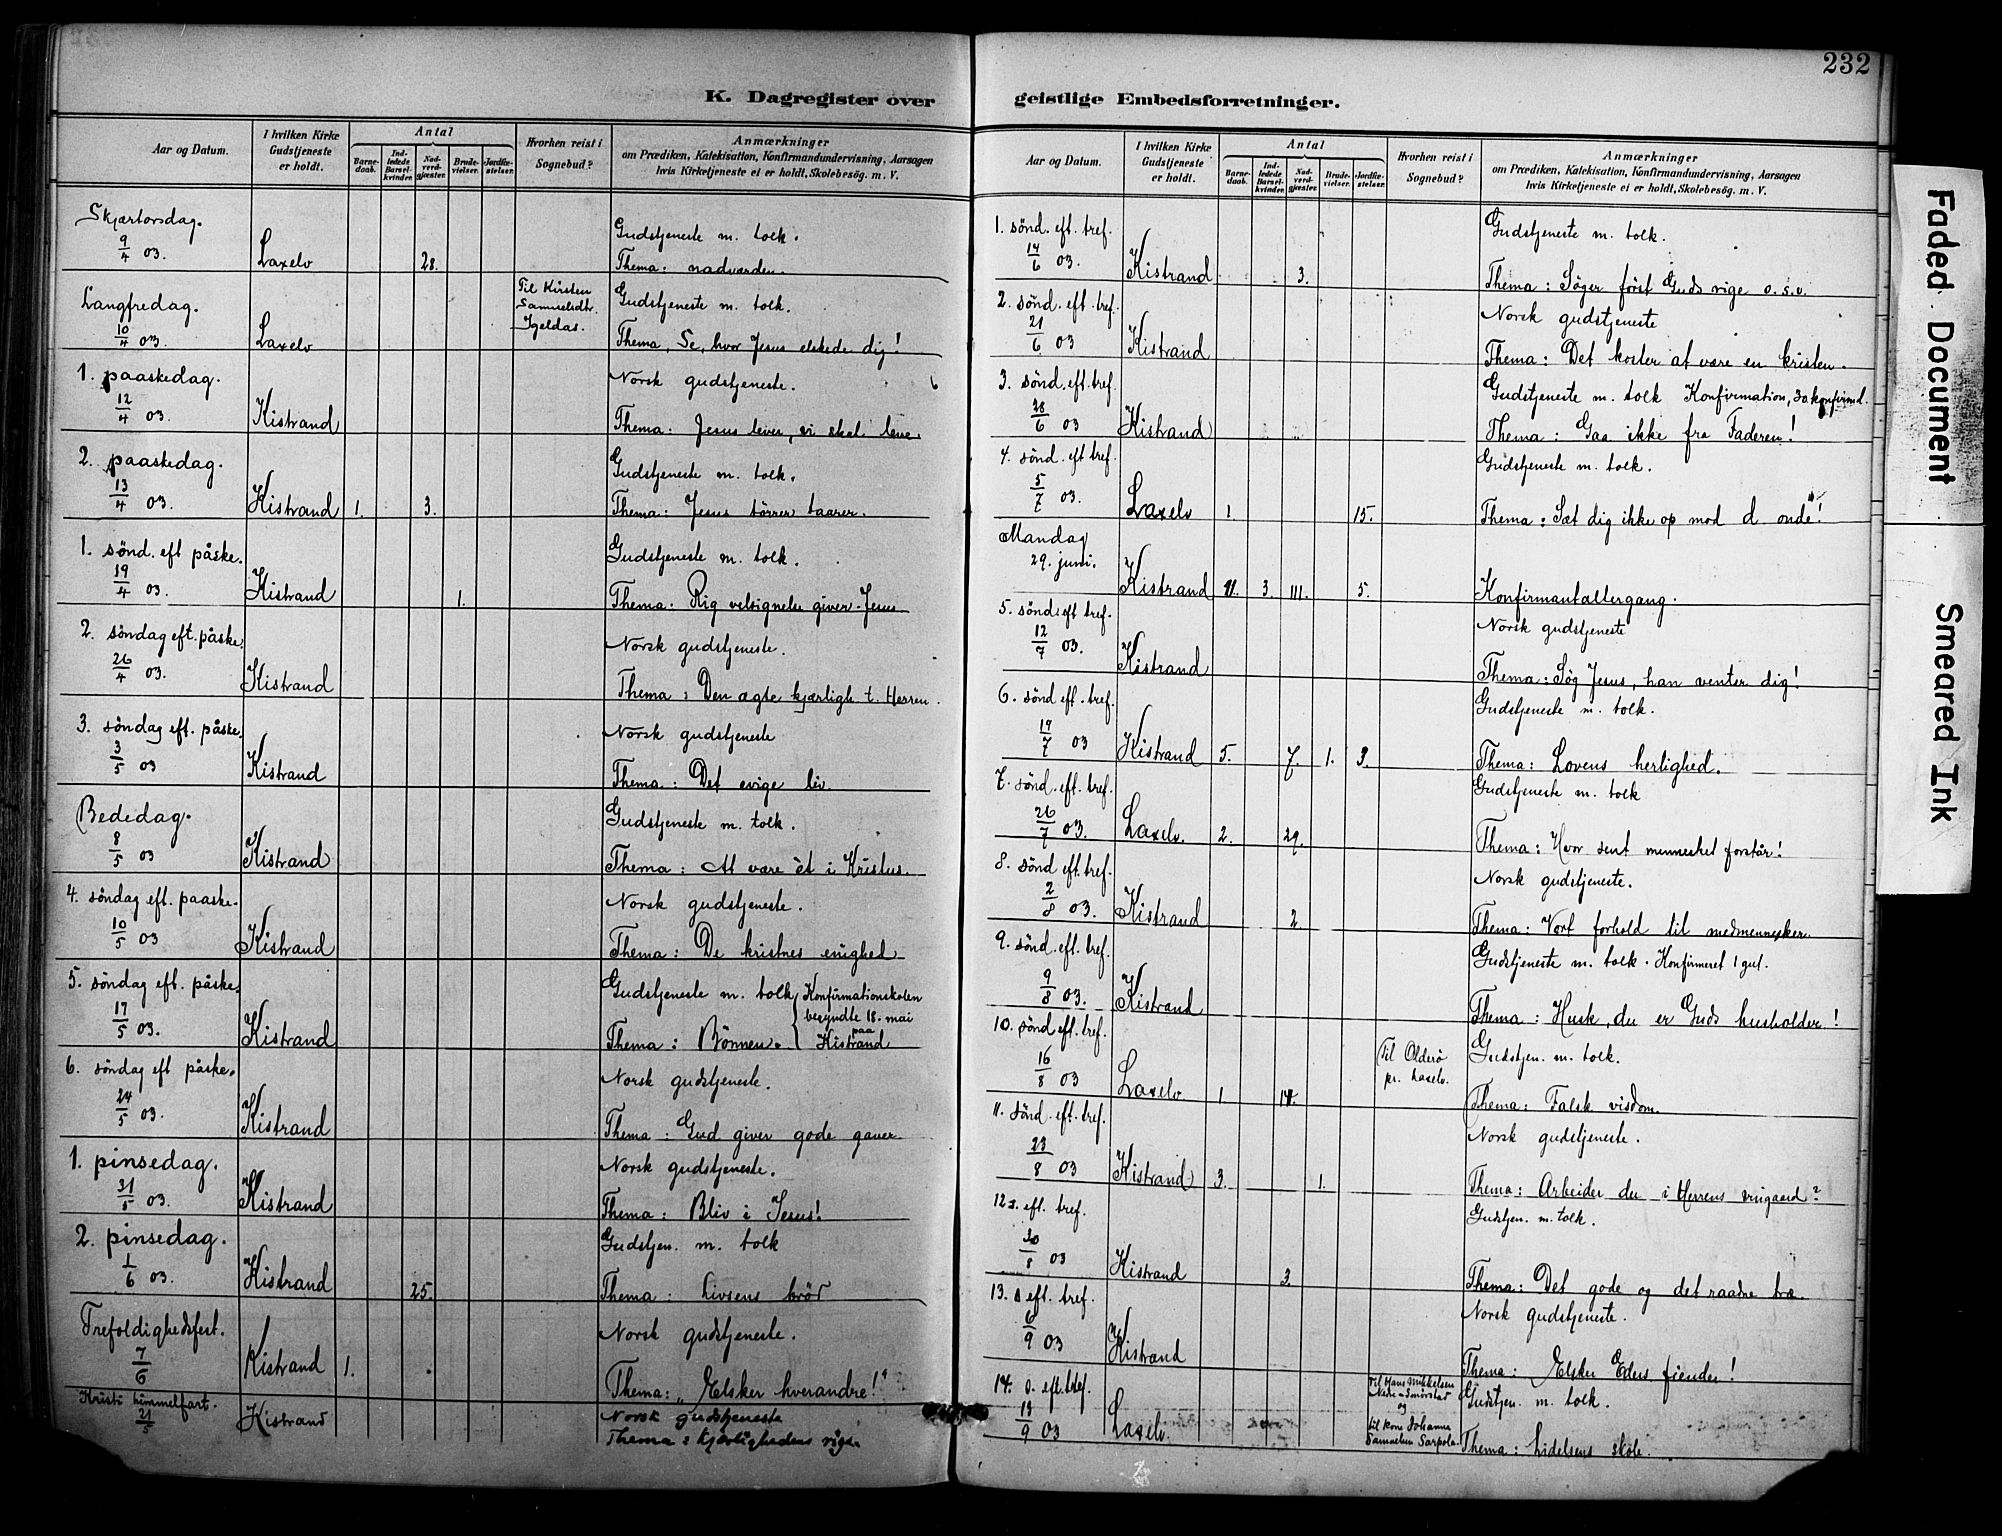 232
K. Dagregister over geistlige Embedsforretninger.
Aar og Datum.
I hvilken Kirke Gudstjeneste er holdt.
Antal
Barnedaab.
Indledede Barselkvinder.
Nadverdgjæster.
Brudevielser.
Jordfæstelser.
Hvorhen reist i Sognebud?
Anmærkninger
om Prædiken, Katekisation, Konfirmandundervisning, Aarsagen
hvis Kirketjeneste ei er holdt, Skolebesøg. m. V.
Skjærtorsdag. Gudstjeneste m. tolk.
9/4 03. Laxelv 28. Thema: nadverden.
Langfredag. Til Kirsten Samuelsdtr. Igeldas. Gudstjeneste m. tolk.
10/4 03. Laxelv Thema, Se, hvor Jesus elskede dig!
1. paaskedag. Norsk gudstjeneste.
12/4 03. Kistrand Thema: Jesus lever, vi skal leve.
2. paaskedag. Gudstjeneste m. tolk.
13/4 03. Kistrand 1. 3. Thema: Jesus tørrer taarer.
1. sønd. eft påske. Gudstjeneste m. tolk.
19/4 03. Kistrand 1. Thema: Rig velsignelse giver Jesus
2. søndag eft. påske. Norsk gudstjeneste.
26/4 03. Kistrand Thema: Den ægte kjærligh t. Herren.
3. søndag eft. påske. Norsk gudstjeneste
3/5 03 Kistrand Thema: Det evige liv.
Bededag. Gudstjeneste m. tolk.
8/5 03 Kistrand Thema: At være ét i Kristus.
4. søndag eft. paaske. Norsk gudstjeneste.
10/5 03 Kistrand Thema: De kristnes enighed
5. søndag eft. påske. Gudstjeneste m. tolk Konfirmationskolen begyndte 18. mai
17/5 03. Kistrand Thema: Bønnen. paa Kistrand
6. søndag eft påske. Norsk gudstjeneste.
24/5 03. Kistrand Thema: Gud giver gode gaver
1. pinsedag. Norsk gudstjeneste.
31/5 03. Kistrand Thema: Bliv i Jesus!
2. pinsedag. Gudstjen. m. tolk
1/6 03. Kistrand 25. Thema: Livsens brød
Trefoldighedsfest. Norsk gudstjeneste.
7/6 Kistrand 1. Thema: "Elsker hverandre!"
Kristi himmelfart. Norsk gudstjeneste
21/5 Kistrand Thema: Kjærlighedens vige.
Aar og Datum.
I hvilken Kirke Gudstjeneste er holdt.
Antal
Barnedaab.
Indledede Barselkvinder.
Nadverdgjæster.
Brudevielser.
Jordfæstelser.
Hvorhen reist i Sognebud?
Anmærkninger
om Prædiken, Katekisation, Konfirmandundervisning, Aarsagen
hvis Kirketjeneste ei er holdt, Skolebesøg. m. V.
1. sønd. eft. tref. Gudstjeneste m. tolk.
14/6 03. Kistrand 3. Thema: Søger først Guds rige o.s.v.
2. sønd. eft tref. Norsk gudstjeneste
21/6 03 Kistrand Thema: Det koster at være en kristen.
3. sønd. eft. tref. Gudstjeneste m. tolk Konfirmation, 30 konfirmd.
28/6 03 Kistrand Thema: Gaa ikke fra Faderen!
4. sønd. eft tref. Gudstjeneste m. tolk.
5/7 03. Laxelv 1. 15. Thema: Sæt dig ikke op mod d onde!
Mandag
29. juni. Kistrand 11. 3. 111. 5. Konfirmantaltergang.
5. sønds eft tref. Norsk gudstjeneste
12/7 03. Kistrand Thema: Søg Jesus, han venter dig!
6. sønd eft. tref. Gudstjeneste m. tolk.
19/7 03 Kistrand 5. 7. 1. 3. Thema: Lovens herlighed.
7. sønd. eft. tref. Gudstjeneste m. tolk
26/7 03. Laxelv. 2. 29. Thema: Hvor sent mennesket forstår!
8. sønd eft. tref. Norsk gudstjeneste.
2/8 03. Kistrand 2 Thema: Vort forhold til medmennesker.
9. sønd. eft. tref. Gudstjeneste m. tolk. Konfirmeret 1 gut.
9/8 03. Kistrand Thema: Husk, du er Guds husholder!
10. sønd eft. tref. Til Olderø pr. Laxelv. Gudstjen. m. tolk.
16/8 03 Laxelv 1. 14. Thema: Falsk visdom.
11. sønd. eft. tref. Norsk gudstjeneste.
23/8 03 Kistrand 3. 1. Thema: Arbeider du i Herrens vingaard?
12 s. eft. tref. Gudstjen. m. tolk.
30/8 03 Kistrand 3. Thema: Det gode og det raadne træ.
13. s eft. tref. Norsk gudstjeneste.
6/9 03 Kistrand Thema: Elsker Eders fiender!
14. s. eft. tref. Til Hans Mikkelsen Nedre-Smørstad og Gudstjen. m. tolk.
13/9 03 Laxelv. til kone Johanna Samuelsen Sarpola. Thema: Lidelsens skole.
Faded Document
Smeared Ink